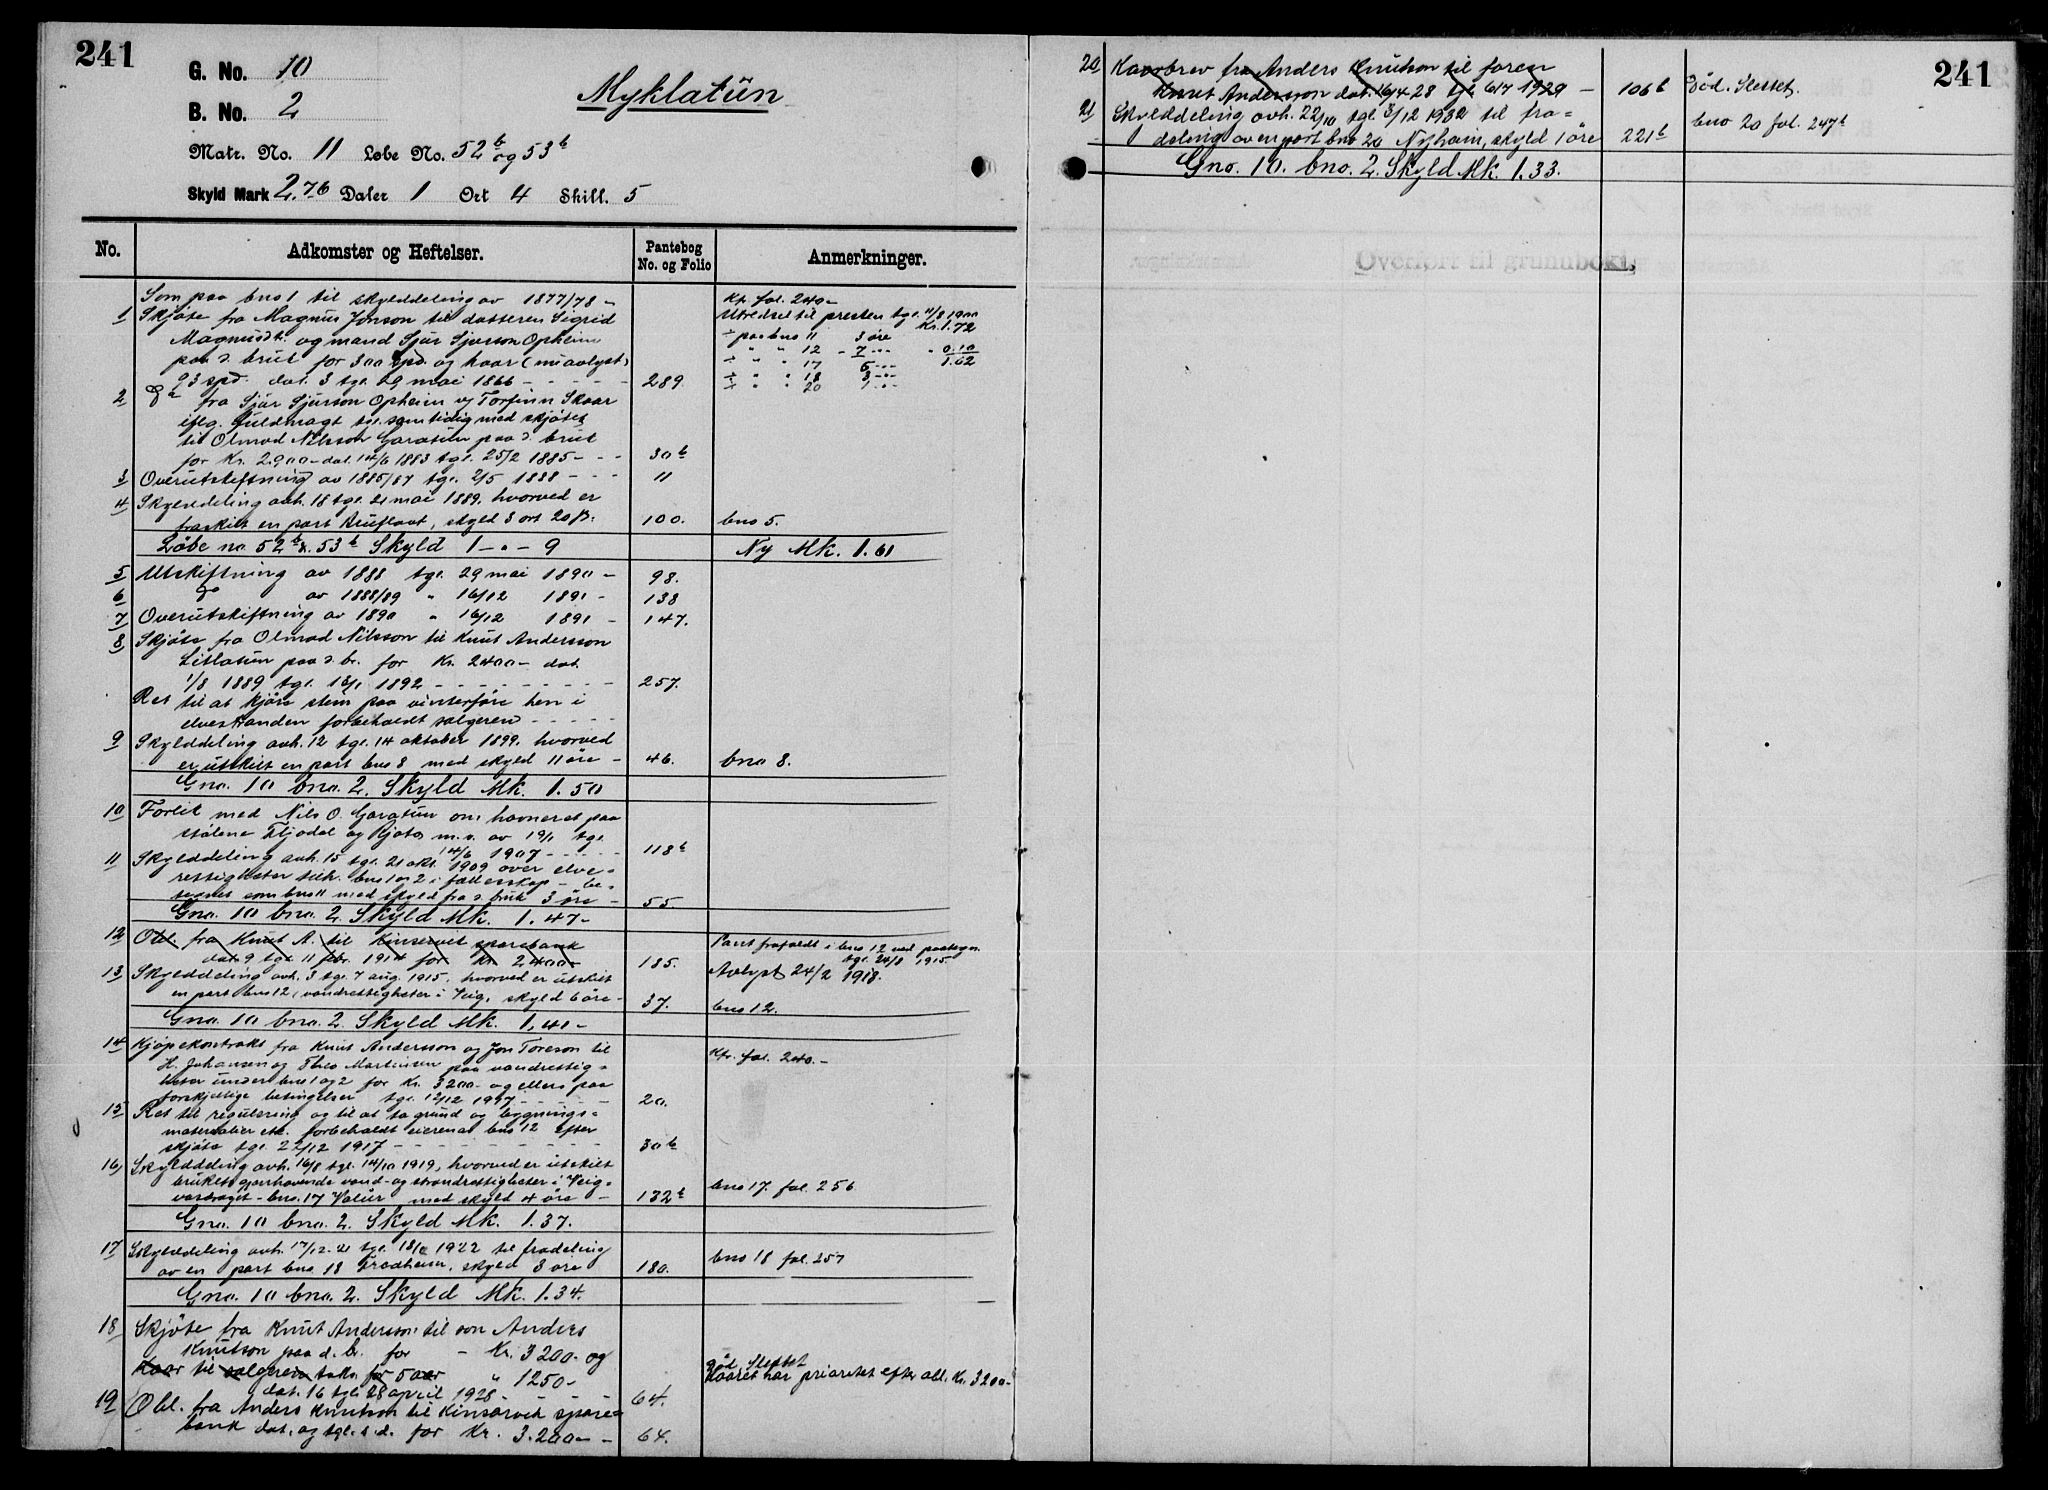 241
G. No. 10
B. No. 2
Myklatün
Matr. No. 11 Løbe No. 52b og 53b
Skyld Mark 2.76 Daler 1 Ort 4 Skill. 5
No. Adkomster og Heftelser. Pantebog No. og Folio Anmerkninger.
Som paa bno 1 til skylddeling av 1877/78 - Kfr. fol. 240 -
1 Skjöte fra Magnus Jonson til datteren Sigrid Utredsel til presten tgl. 11/8 1900 Kr. 1.72
Magnusdt. og mand Sjur Sjurson Opheim ÷ paa bno 11 3 öre
paa d. bruk for 300 spd. og kaar (nu avlyst) ÷ " " 12 - 7 -"- " 0.10
93 spd. dat. 3 tgl. 29 mai 1866 - - - - - 289. ÷ " " 17 6 -"- 1.62
÷ " " 18 3 -"-
÷ " " 20 1 -"-
2 Do fra Sjur Sjurson Opheim v/ Torfinn Skaar
iflg. fuldmagt tgl. samtidig med skjötet
til Olmod Nilsson Garatun paa d. bruk
for Kr. 2900 - dat. 14/6 1883 tgl. 25/2 1885 - - - 30b
3 Overutskiftning av 1885/87 tgl. 2/5 1888 - - - 11
4 Skylddeling avh. 18 tgl. 21 mai 1889, hvorved er
fraskilt en part Bruflaat, skyld 3 ort 20 ß. 100. bno 5.
Löbe no 52b & 53b Skyld 1 - " - 9 Ny Mk. 1.61
5 Utskiftning av 1888 tgl. 29 mai 1890 - 98.
6 Do av 1888/89 " 16/12 1891 - 138
7 Overutskiftning av 1890 " 16/12 1891 - 147.
8 Skjöte fra Olmod Nilsson til Knut Andersson
Litlatun paa d. br. for Kr. 2400 - dat.
1/8 1889 tgl. 18/1 1892 - - - - - - - - - 257.
Ret til at kjöre stein paa vinterföre hen i
elvestranden forbeholdt sælgeren - - - - -
9 Skylddeling avh. 12 tgl. 14 oktober 1899, hvorved
er utskilt en part bno 8 med skyld 11 öre - 46. bno 8.
Gno. 10 bno. 2. Skyld Mk. 1.50
10 Forlik med Nils O. Garatun om havneret paa
stölene Fljodal og Kjota m.v. av 19/1 tgl.
14/6 1907 - - - - - 118b
11 Skylddeling avh. 15 tgl. 21 okt. 1909 over elve-
rettigheter tilh. bno 1 og 2 i fællesskap - be-
tegnet som bno 11 med skyld fra d. bruk 3 öre - 55.
Gno. 10 bno. 2. Skyld Mk. 1.47 -
12 Obl. fra Knut A. til Kinservik sparebank Pant frafaldt i bno 12 ved paategn.
dat. 9 tgl. 11 febr. 1914 for Kr. 2400 - 185. tgl. 24/8 1915.
Avlyst 24/2 1918.
13 Skylddeling avh. 3 tgl. 7 aug. 1915, hvorved er utskilt
en part bno 12, vandrettigheter i Veig, skyld 6 öre - 37. bno 12.
Gno. 10 bno. 2. Skyld Mk. 1.41 -
14 Kjöpekontrakt fra Knut Andersson og Jon Toreson til Kfr. fol. 240. -
H. Johansen og Theo Martinsen paa vandrettig-
heter under bno 1 og 2 for Kr. 3200 - og ellers paa
forskjellige betingelser tgl. 12/12 1917 - - - - - 20.
15 Ret til regulering og til at ta grund og bygnings-
materialier etc. forbeholdt eierena av bno 12 efter
skjöte tgl. 22/12 1917 - - - - - - - - 30b
16, Skylddeling avh. 16/8 tgl. 14/10 1919, hvorved er utskilt
brukets gjenhavende vand- og strandrettigheter i Veig-
vasdraget - bno. 17 Valur med skyld 4 öre - 132b bno 17. fol. 256
Gno. 10 bno. 2. Skyld Mk. 1.37.
17 Skylddeling avh. 17/12-21 tgl. 18/2 1922 til fradeling
av en part bno. 18 Fredheim, skyld 3 öre 180. bno 18 fol. 257
Gno. 10 bno. 2. Skyld Mk. 1.34.
18 Skjöte fra Knut Andersson til son Anders
Knutson paa d. br. for - Kr. 3200 - og
Kaar til sælgeren takst for 5 aar " 1250 - Död. Slettet
Kaaret har prioritet efter obl. Kr. 3200 -
dat. 16 tgl. 28 april 1928 - - - 64.
19 Obl. fra Anders Knutson til Kinsarvik spare-
bank dat. og tgl. s.d. for Kr. 3.200 - - 64.
241
20 Kaarbrev fra Anders Knutson til faren
Knut Andersson dat. 16/4 28 tgl. 6/7 1929 - 106b Död. Slettet.
21 Skylddeling avh. 22/10 tgl. 3/12 1932 til fra-
deling av en part bno 20 Nyheim, skyld 1 öre 221b bno 20 fol. 247b
Gno. 10. bno. 2. Skyld Mk. 1.33.
Overført til grunnboki.